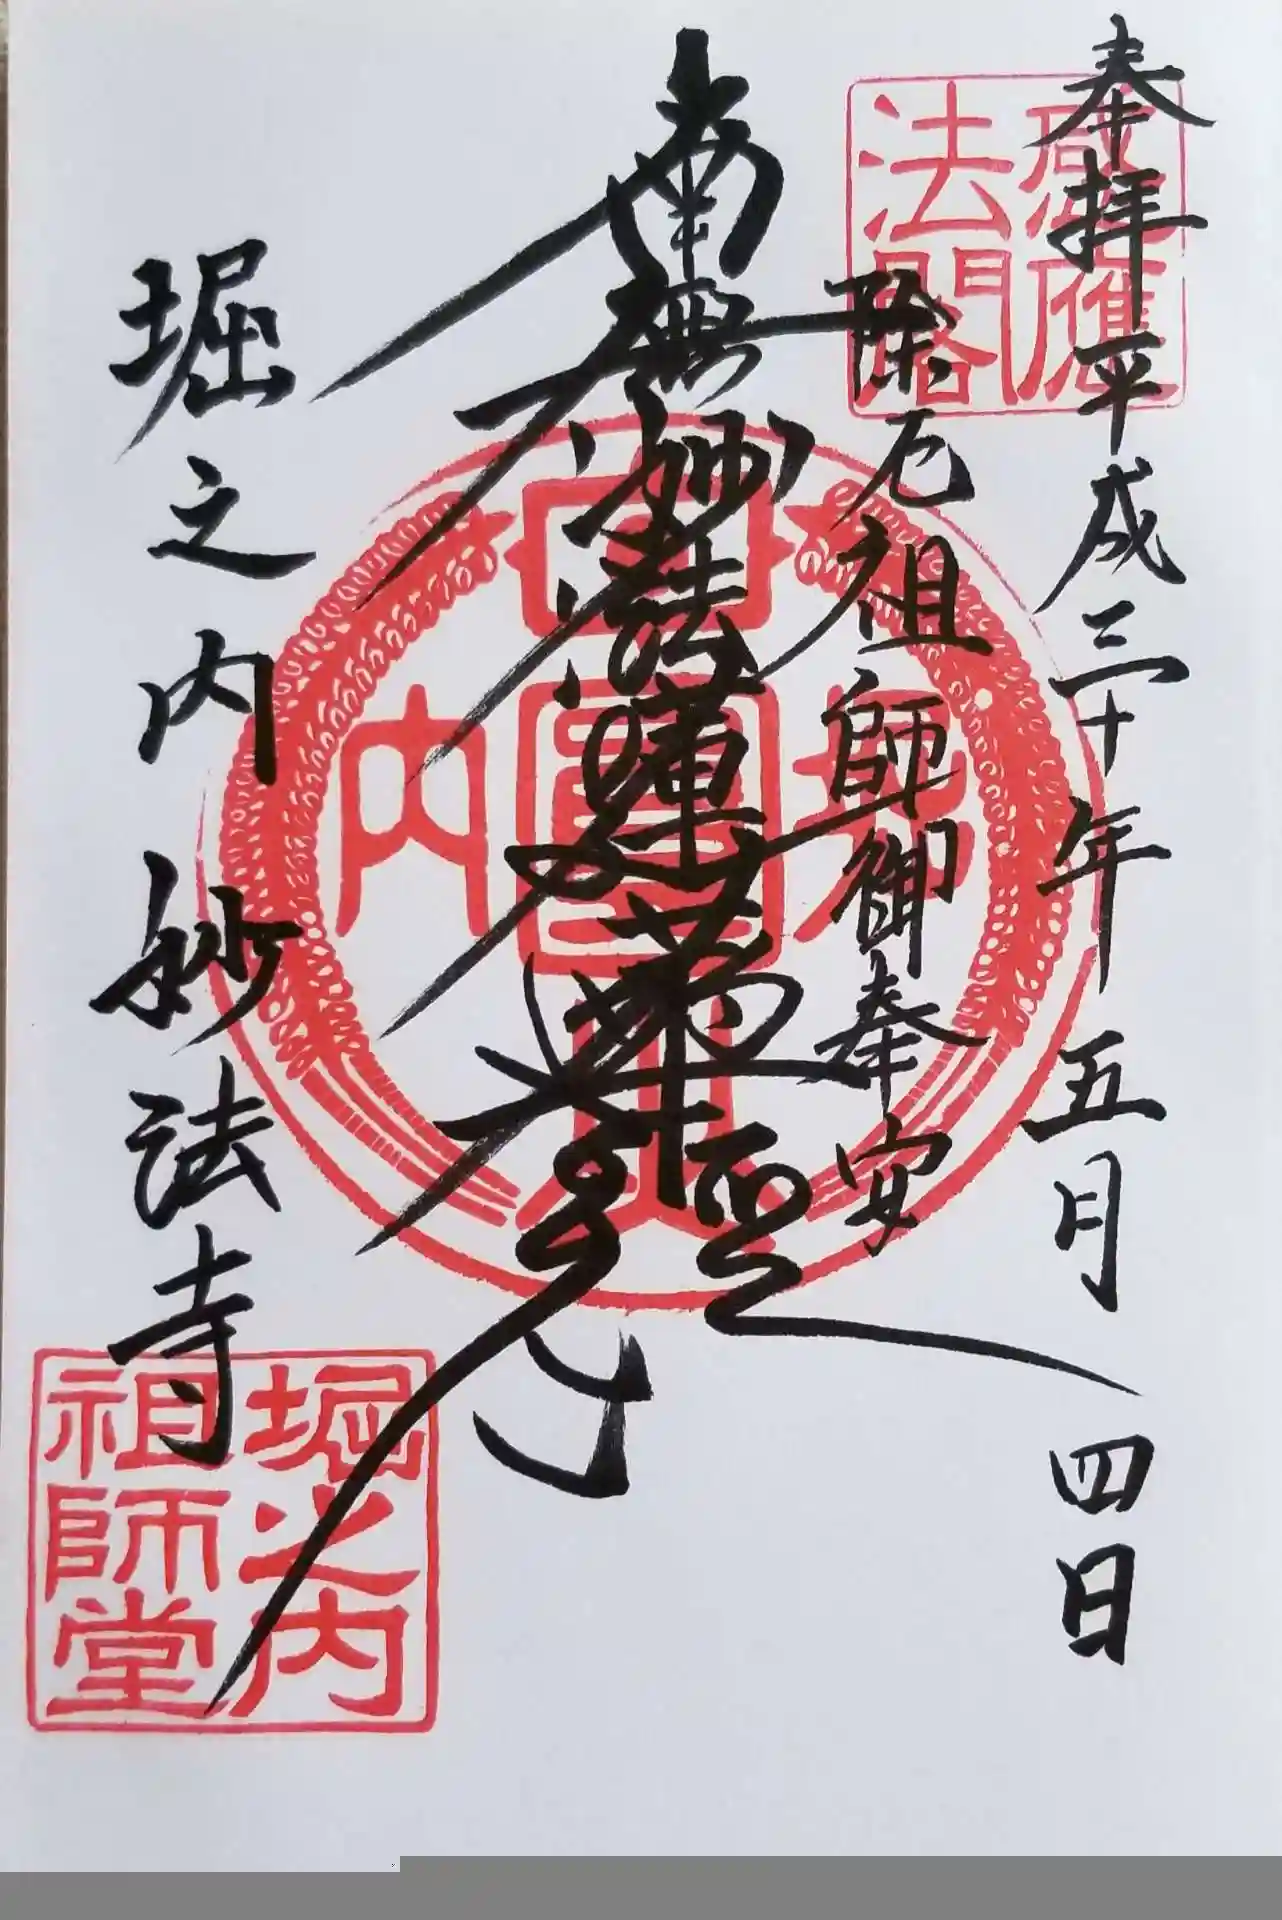 奉拝平成三十年五月四日
除厄祖師御奉安
南無妙法蓮華経
堀之内妙法寺
感應
法閣
堀
内
堀之内
祖師堂